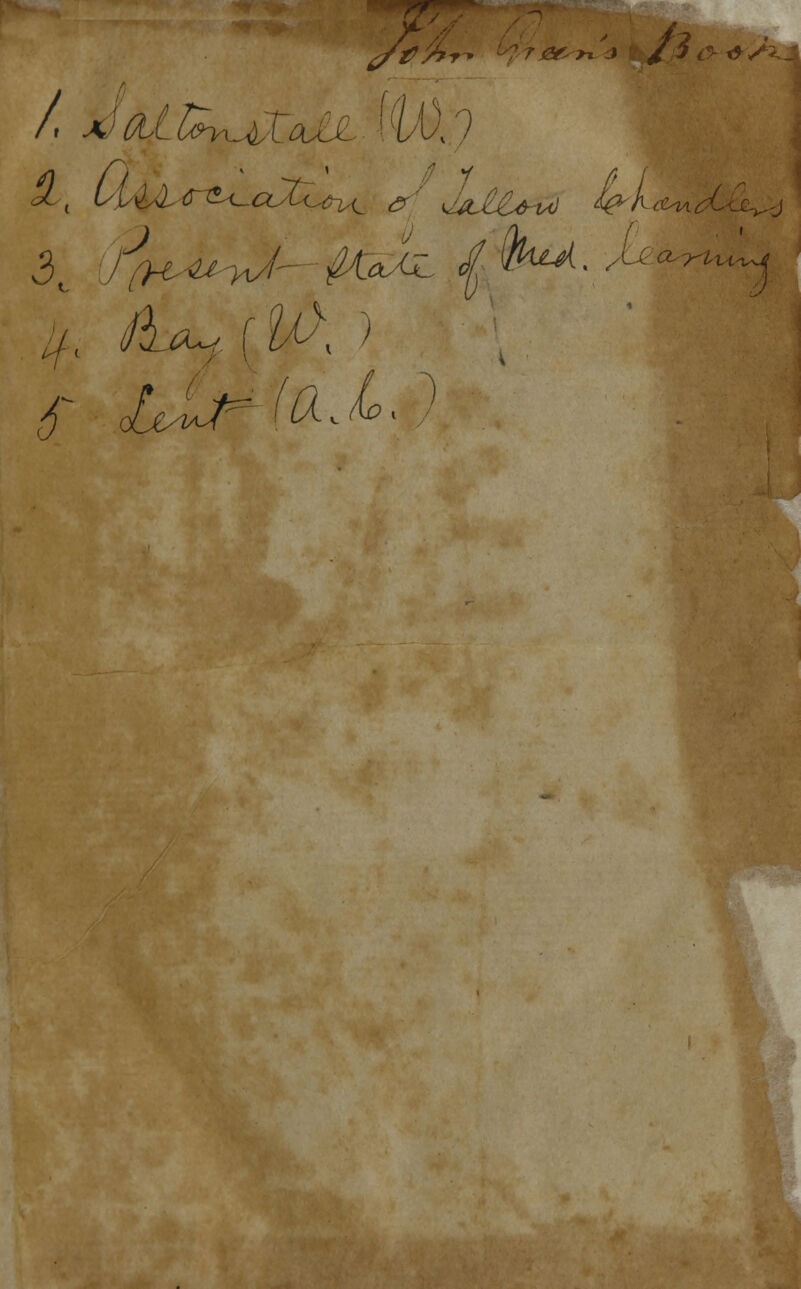 John Green's Book
1. Saltonstall (W.)
2. Association of Tallow Chandlers
3. Present State of Med. learning
4. Bay (W.)
5 Lent (A. C.)